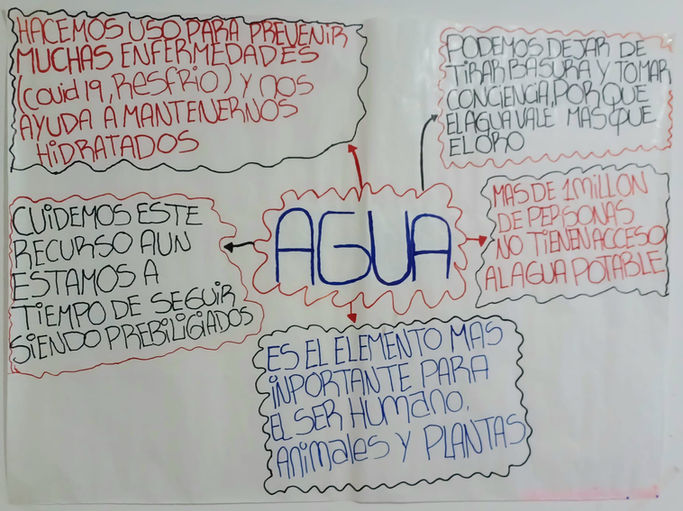 HACEMOS USO PARA PREVENIR
MUCHAS ENFERMEDADES
(COVID 19, RESFRIO) Y NOS
AYUDA A MANTENERNOS
HIDRATADOS
PODEMOS DEJAR DE
TIRAR BASURA Y TOMAR
CONCIENCA, PORQUE
EL AGUA VALE MAS QUE
EL ORO
MAS DE 1 MILLON
DE PERSONAS
NO TIENEN ACCESO
AL AGUA POTABLE
CUIDEMOS ESTE
RECURSO AUN
ESTAMOS A
TIEMPO DE SEGUIR
SIENDO PREBILIGIADOS
AGUA
ES EL ELEMENTO MAS
INPORTANTE PARA
EL SER HUMANO,
ANIMALES Y PLANTAS